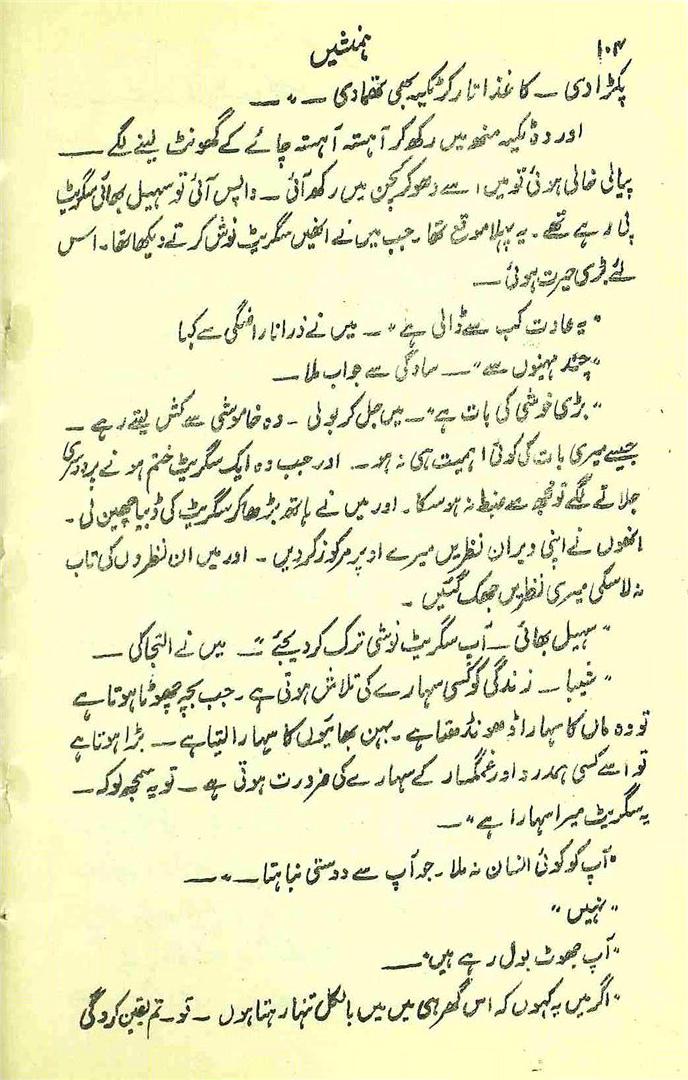 ۱۰۴
ہمنشیں
پکڑا دی ۔ کاغذ اتار کر ٹکیہ بھی تھما دی ۔ " ۔
اور وہ ٹکیہ منھ میں رکھ کر آہستہ آہستہ چائے کے گھونٹ لینے لگے ۔
پیالی خالی ہوئی تو میں اسے دھو کر کچن میں رکھ آئی ۔ واپس آئی تو سہیل بھائی سگریٹ
پی رہے تھے ۔ یہ پہلا موقع تھا ۔ جب میں نے انھیں سگریٹ نوش کرتے دیکھا تھا ۔ اس
لئے بڑی حیرت ہوئی ۔
" یہ عادت کب سے ڈالی ہے " ۔ میں نے ذرا ناراضگی سے کہا
" چند مہینوں سے " ۔ سادگی سے جواب ملا ۔
" بڑی خوشی کی بات ہے " ۔ میں جل کر بولی ۔ وہ خاموشی سے کش لیتے رہے ۔
جیسے میری بات کی کوئی اہمیت ہی نہ ہو ۔ اور جب وہ ایک سگریٹ ختم ہونے پر دوسری
جلانے لگے تو مجھ سے ضبط نہ ہو سکا ۔ اور میں نے ہاتھ بڑھا کر سگریٹ کی ڈبیا چھین لی ۔
انھوں نے اپنی ویران نظریں میرے اوپر مرکوز کر دیں ۔ اور میں ان نظروں کی تاب
نہ لا سکی میری نظریں جھک گئیں ۔
" سہیل بھائی ۔ آپ سگریٹ نوشی ترک کر دیجئے " ۔ میں نے التجا کی ۔
" شیبا ۔ زندگی کو کسی سہارے کی تلاش ہوتی ہے ۔ جب بچہ چھوٹا ہوتا ہے
تو وہ ماں کا سہارا ڈھونڈھتا ہے ۔ بہن بھائیوں کا سہارا لیتا ہے ۔ بڑا ہوتا ہے
تو اسے کسی ہمدرد اور غمگسار کے سہارے کی ضرورت ہوتی ہے ۔ تو یہ سمجھ لو کہ ۔
یہ سگریٹ میرا سہارا ہے " ۔
" آپ کو کوئی انسان نہ ملا ۔ جو آپ سے دوستی نباہتا ۔ " ۔
" نہیں "
" آپ جھوٹ بول رہے ہیں " ۔
" اگر میں یہ کہوں کہ اس گھر ہی میں میں بالکل تنہا رہتا ہوں ۔ تو ۔ تم یقین کرو گی